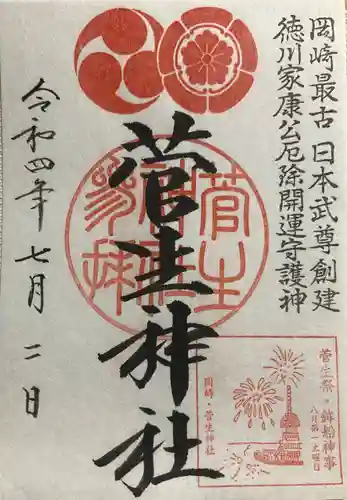 岡崎最古 日本武尊創建
徳川家康公厄除開運守護神
菅生神社
令和四年七月二日
菅生神社参拝
菅生祭・鉾船神事
八月第一土曜日
岡崎・菅生神社